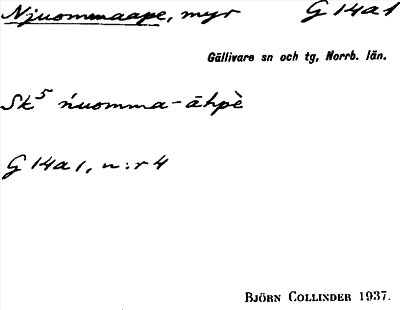 Njuommaape, myr G 14 a 1
Gällivare sn och tg, Norrb. län.
Sk⁵ ńuomma-āhpè
G 14 a 1, n:r 4
BJÖRN COLLINDER 1937.